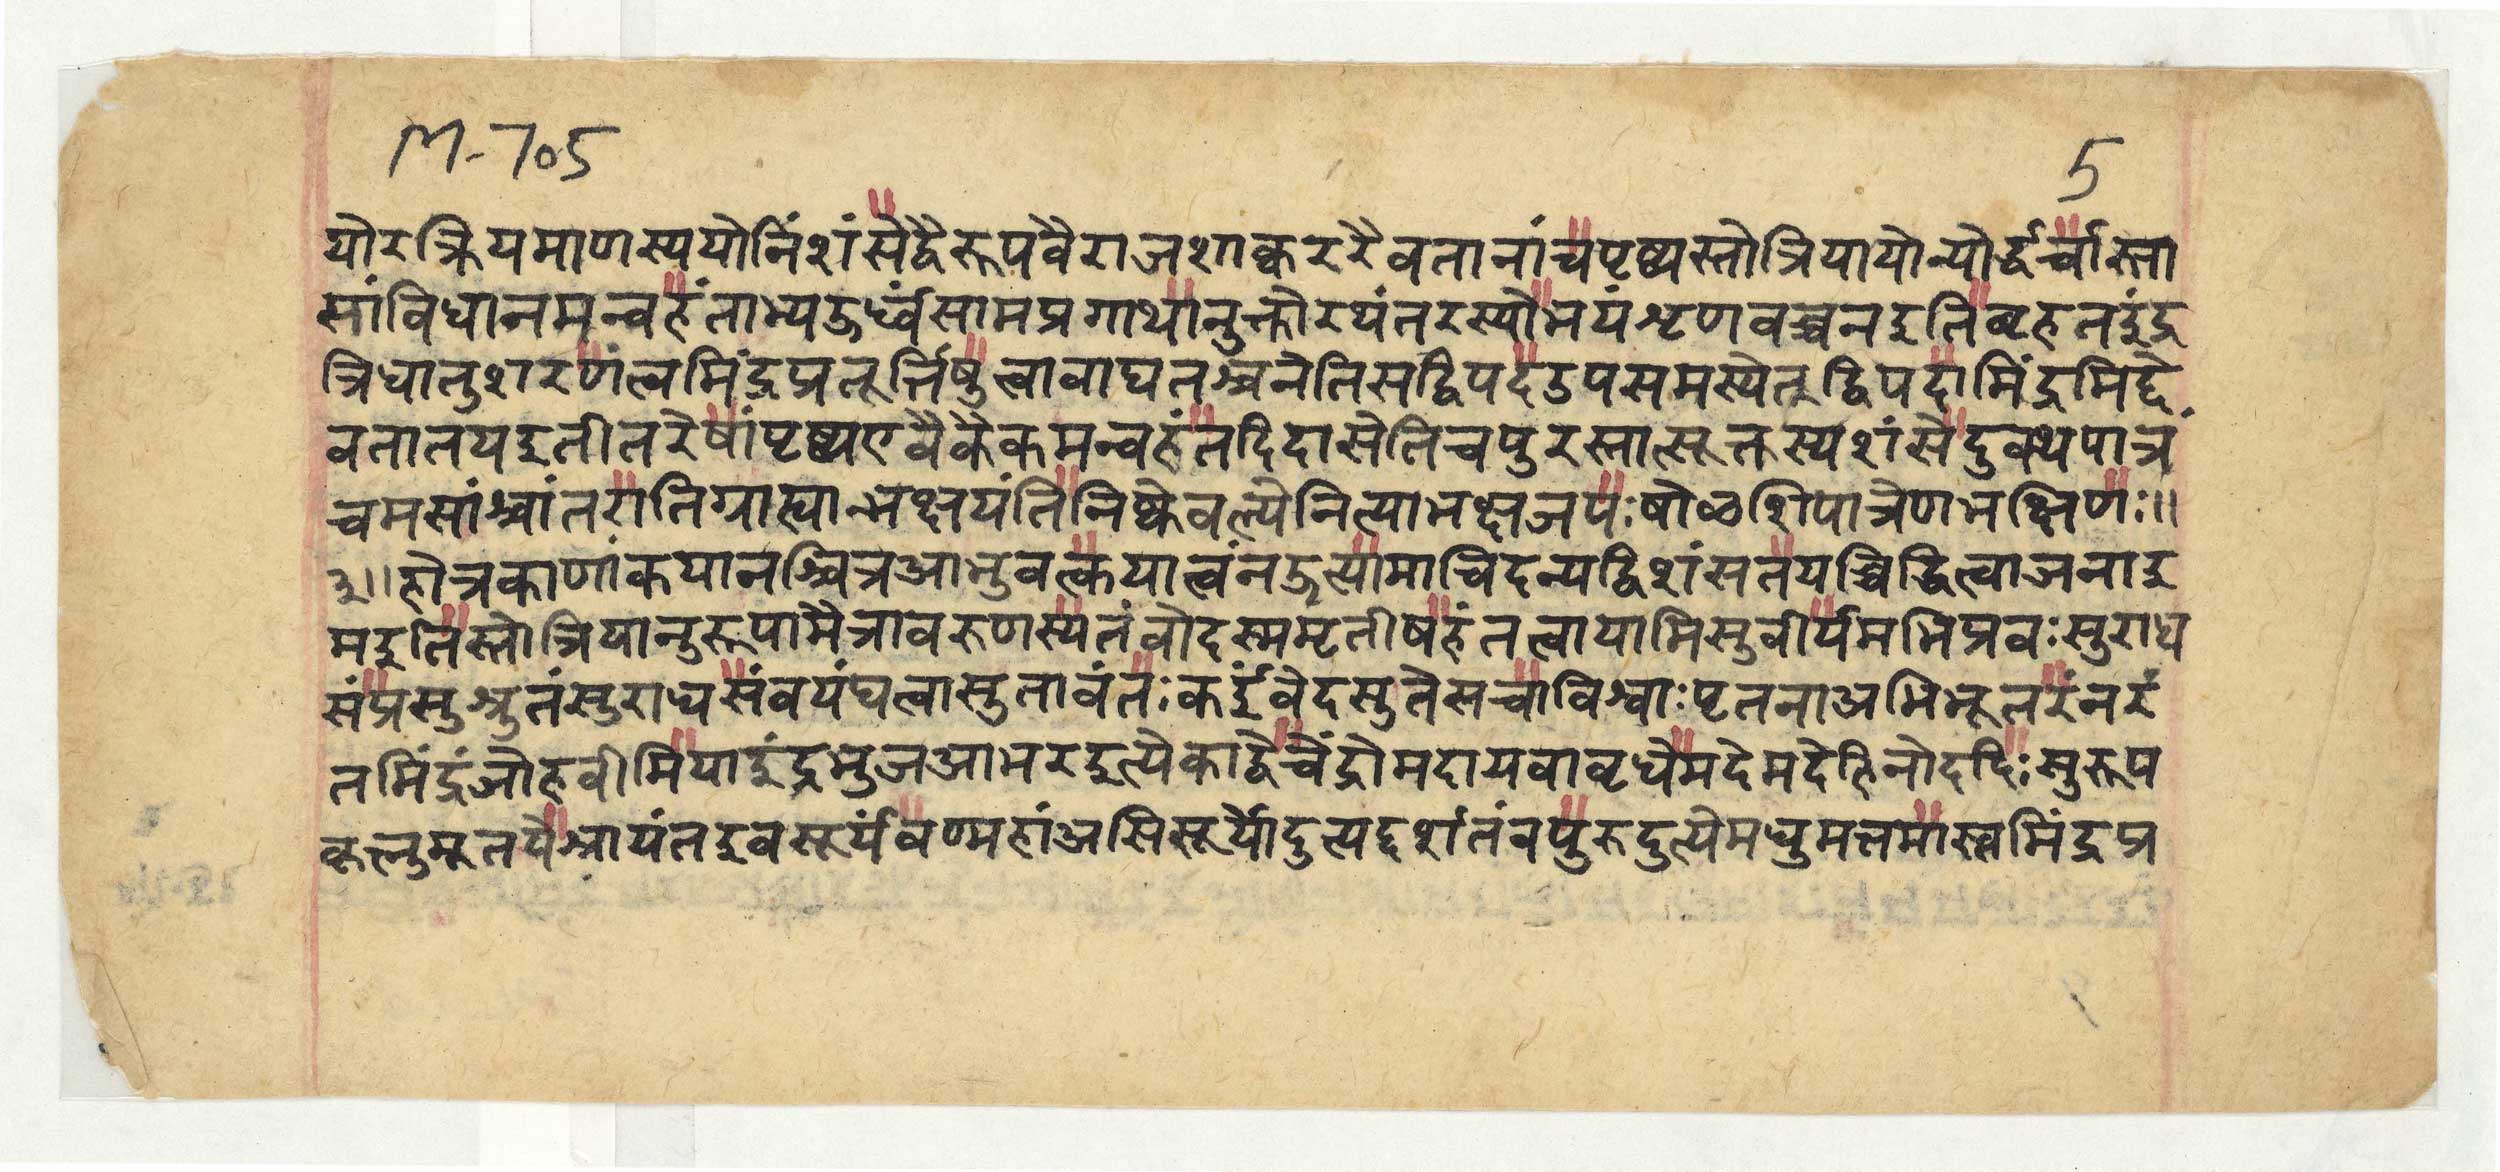 M-705
5
योरक्रियमाणस्ययोनिंशंसेद्वैरूपवैराजशाक्वररैवतानांचपृष्ठ्यस्तोत्रियायोन्योर्द्धर्चास्ता
सांविधानमन्वहंताभ्यऊर्ध्वंसामप्रगाथानुक्तौरथंतरस्योभयंशृणवच्चनइतिबृहतइंद्र
त्रिधातुशरणंत्वमिंद्रप्रतूर्त्तिषुत्वावाघतश्चनेतिसद्विपदउपसमस्येत्द्विपदामिंद्रमिद्दे
वतातयइतीतरेषांपृष्ठ्यएवैकैकमन्वहंतदिदासेतिचपुरस्तात्सूक्तस्यशंसेदुक्थपात्रं
चमसांश्चांतरातिग्राह्यान्भक्षयंतिनिष्केवल्येनित्याभक्षजपःषोळशिपात्रेणभक्षिणः॥
३॥होत्रकाणांकयानश्चित्रआभुवत्कयात्वंनऊत्यामाचिदन्यद्विशंसतयच्चिद्धित्वाजनाइ
मइतिस्तोत्रियानुरूपामैत्रावरुणस्यतंवोदस्ममृतीषहंतत्त्वायामिसुवीर्यमभिप्रवःसुराध
संप्रसुश्रुतंसुराधसंवयंघत्वासुतावंतःकईंवेदसुतेसचाविश्वाःपृतनाअभिभूतरंनरं
तमिंद्रंजोहवीमियाइंद्रभुजआभरइत्येकाद्वेचेंद्रोमदायवावृधेमदेमदेहिनोददिःसुरूप
कृत्नुमूतयेश्रायंतइवसूर्यंबण्महांअसिसूर्योदुत्यद्दर्शतंवपुरुदुत्येमधुमत्तमास्त्वमिंद्रप्र